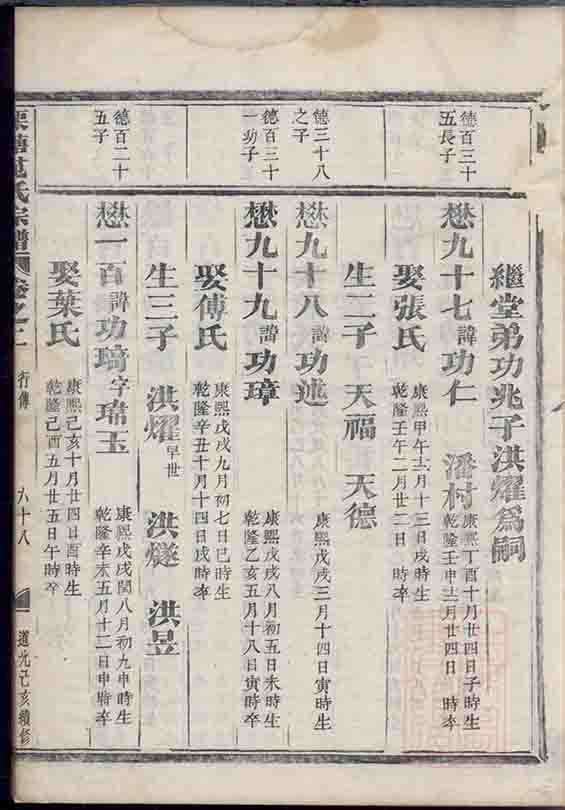 繼堂弟功兆子洪燿爲嗣
德百三十
五長子
懋九十七諱功仁 潘村
康熙丁酉十月廿四日子時生
乾隆壬申十二月廿四日 時卒
娶張氏
康熙甲午十二月十三日戌時生
乾隆壬午二月廿二日 時卒
生二子 天福 天德
德三十八
之子
懋九十八諱功
康熙戊戌三月十四日寅時生
德百三十
一幼子
懋九十九諱功璋
康熙戊戌八月初五日未時生
乾隆乙亥五月十八日寅時卒
娶傅氏
康熙戊戌九月初七日巳時生
乾隆辛丑十月十四日戌時卒
生三子 洪燿早世 洪燧 洪昱
德百二十
五子
懋一百諱功琦字瑋玉
康熙戊戌閏八月初九申時生
乾隆辛未五月十二日申時卒
娶葉氏
康熙己亥十月廿四日酉時生
乾隆己酉五月廿五日午時卒
氏宗譜 卷之 行傳 六十八 道光己亥續修